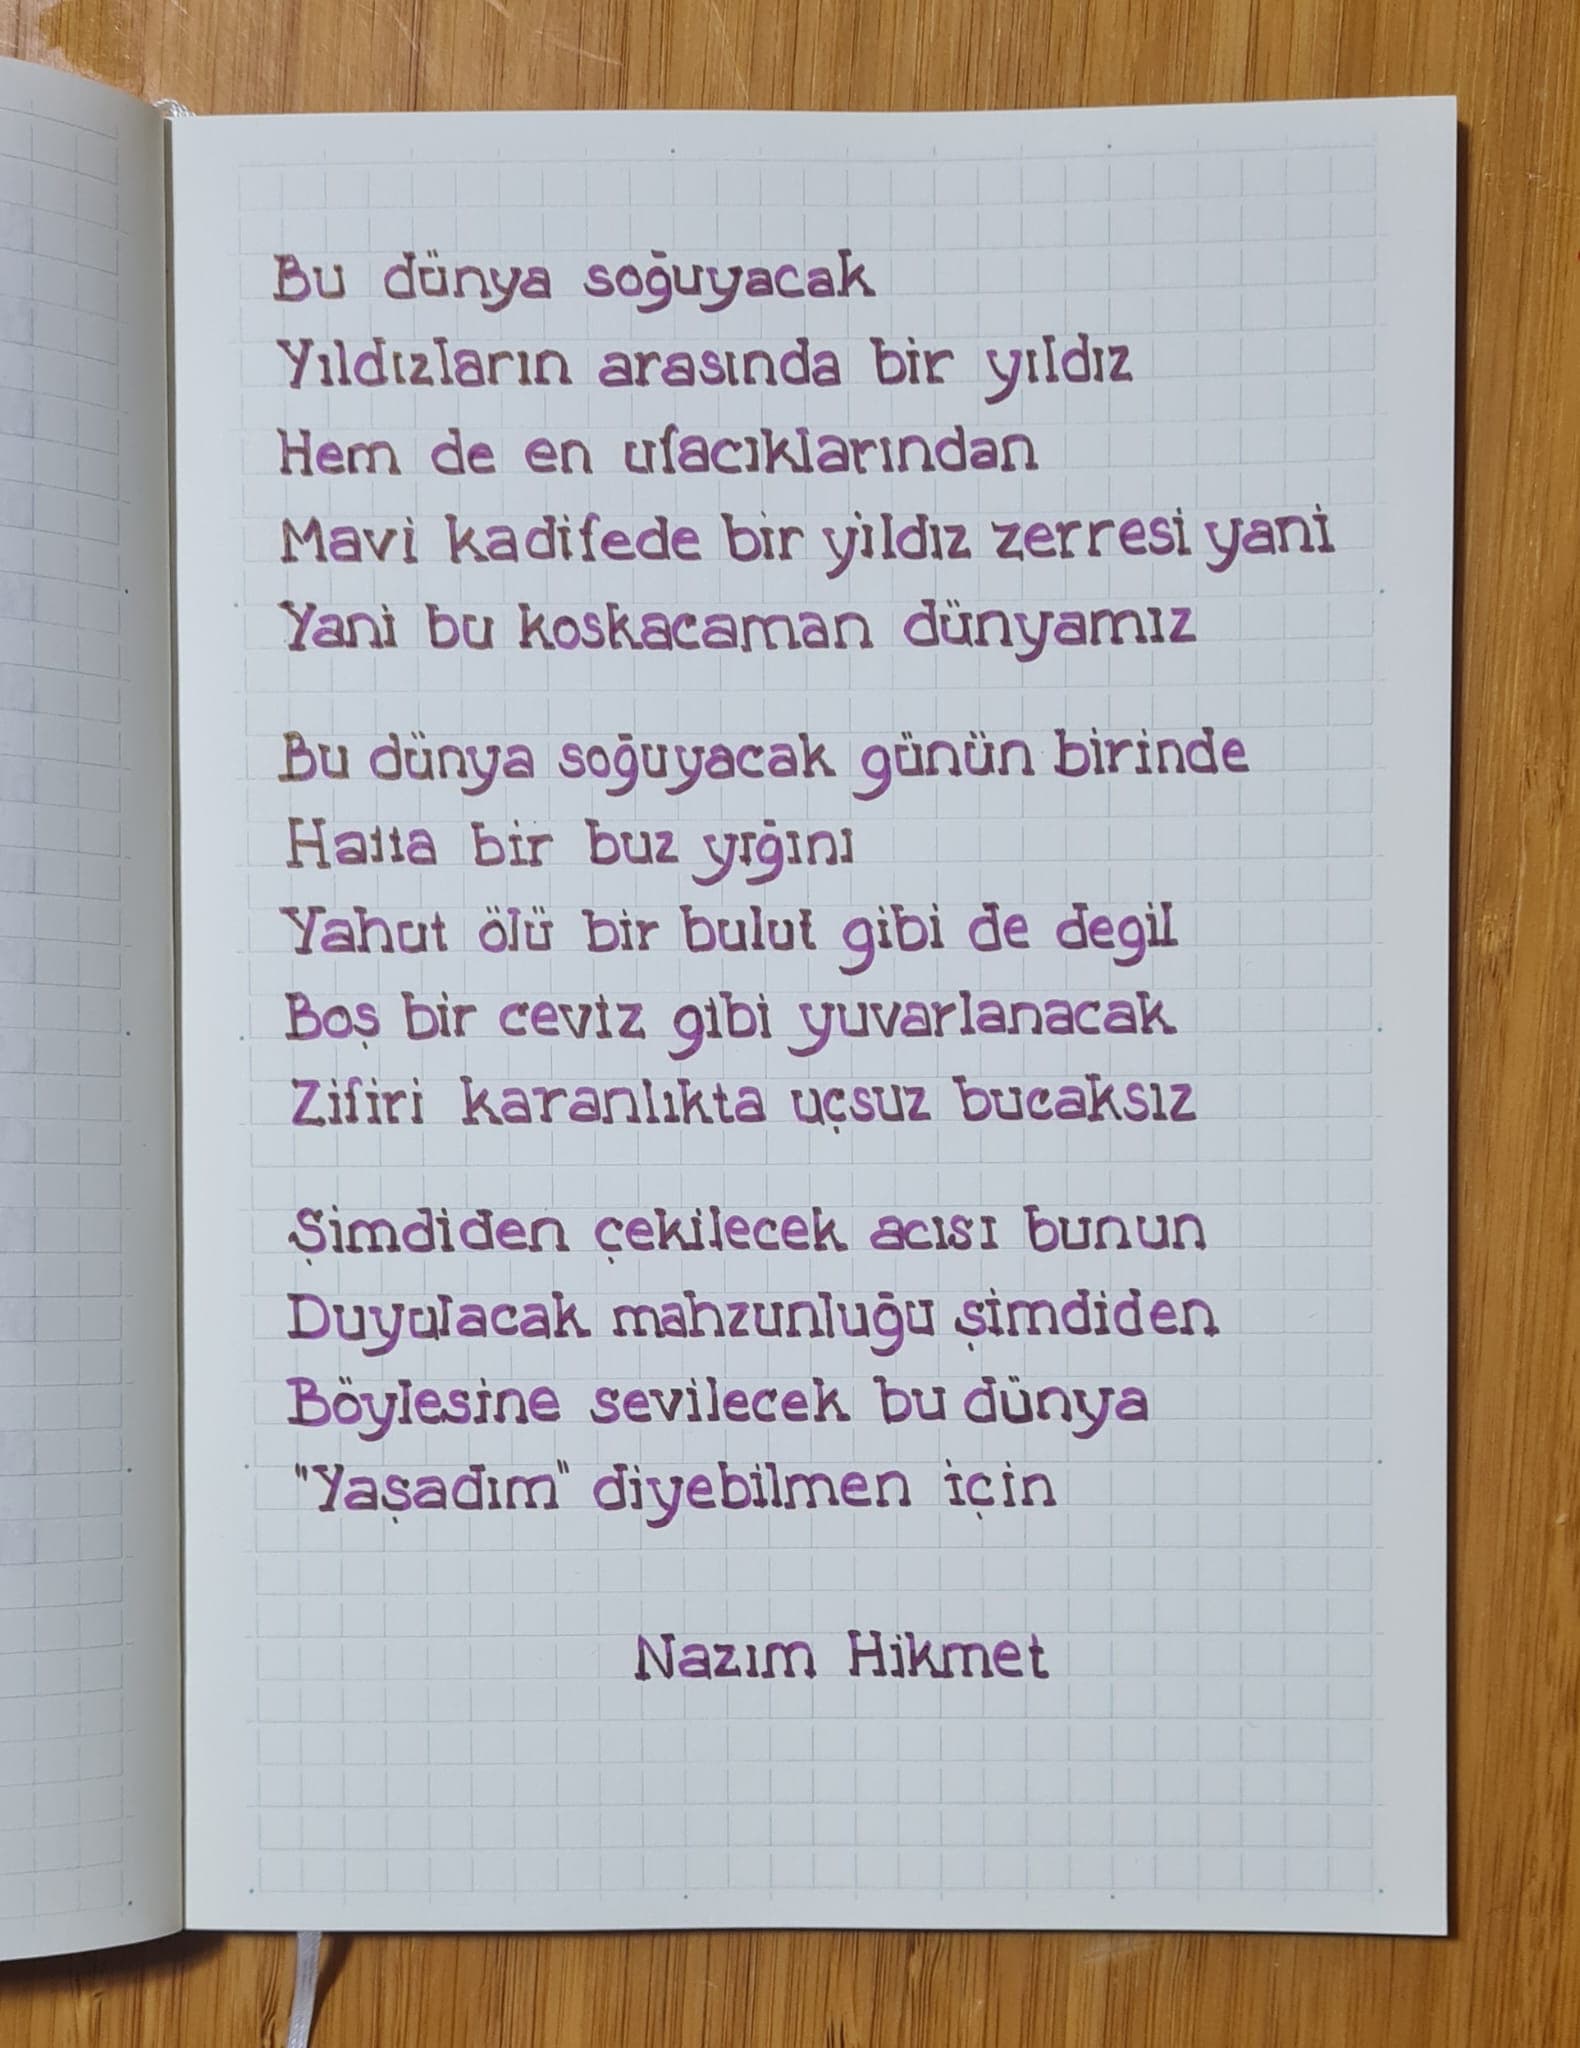 Bu dünya soğuyacak
Yıldızların arasında bir yıldız
Hem de en ufacıklarından
Mavi kadifede bir yildız zerresi yani
Yani bu koskacaman dünyamız
Bu dünya soğuyacak günün birinde
Hatta bir buz yığını
Yahut ölü bir bulut gibi de degil
Boş bir ceviz gibi yuvarlanacak
Zifiri karanlıkta uçsuz bucaksız
Şimdiden çekilecek acısı bunun
Duyulacak mahzunluğu şimdiden
Böylesine sevilecek bu dünya
"Yaşadım" diyebilmen için
Nazım Hikmet